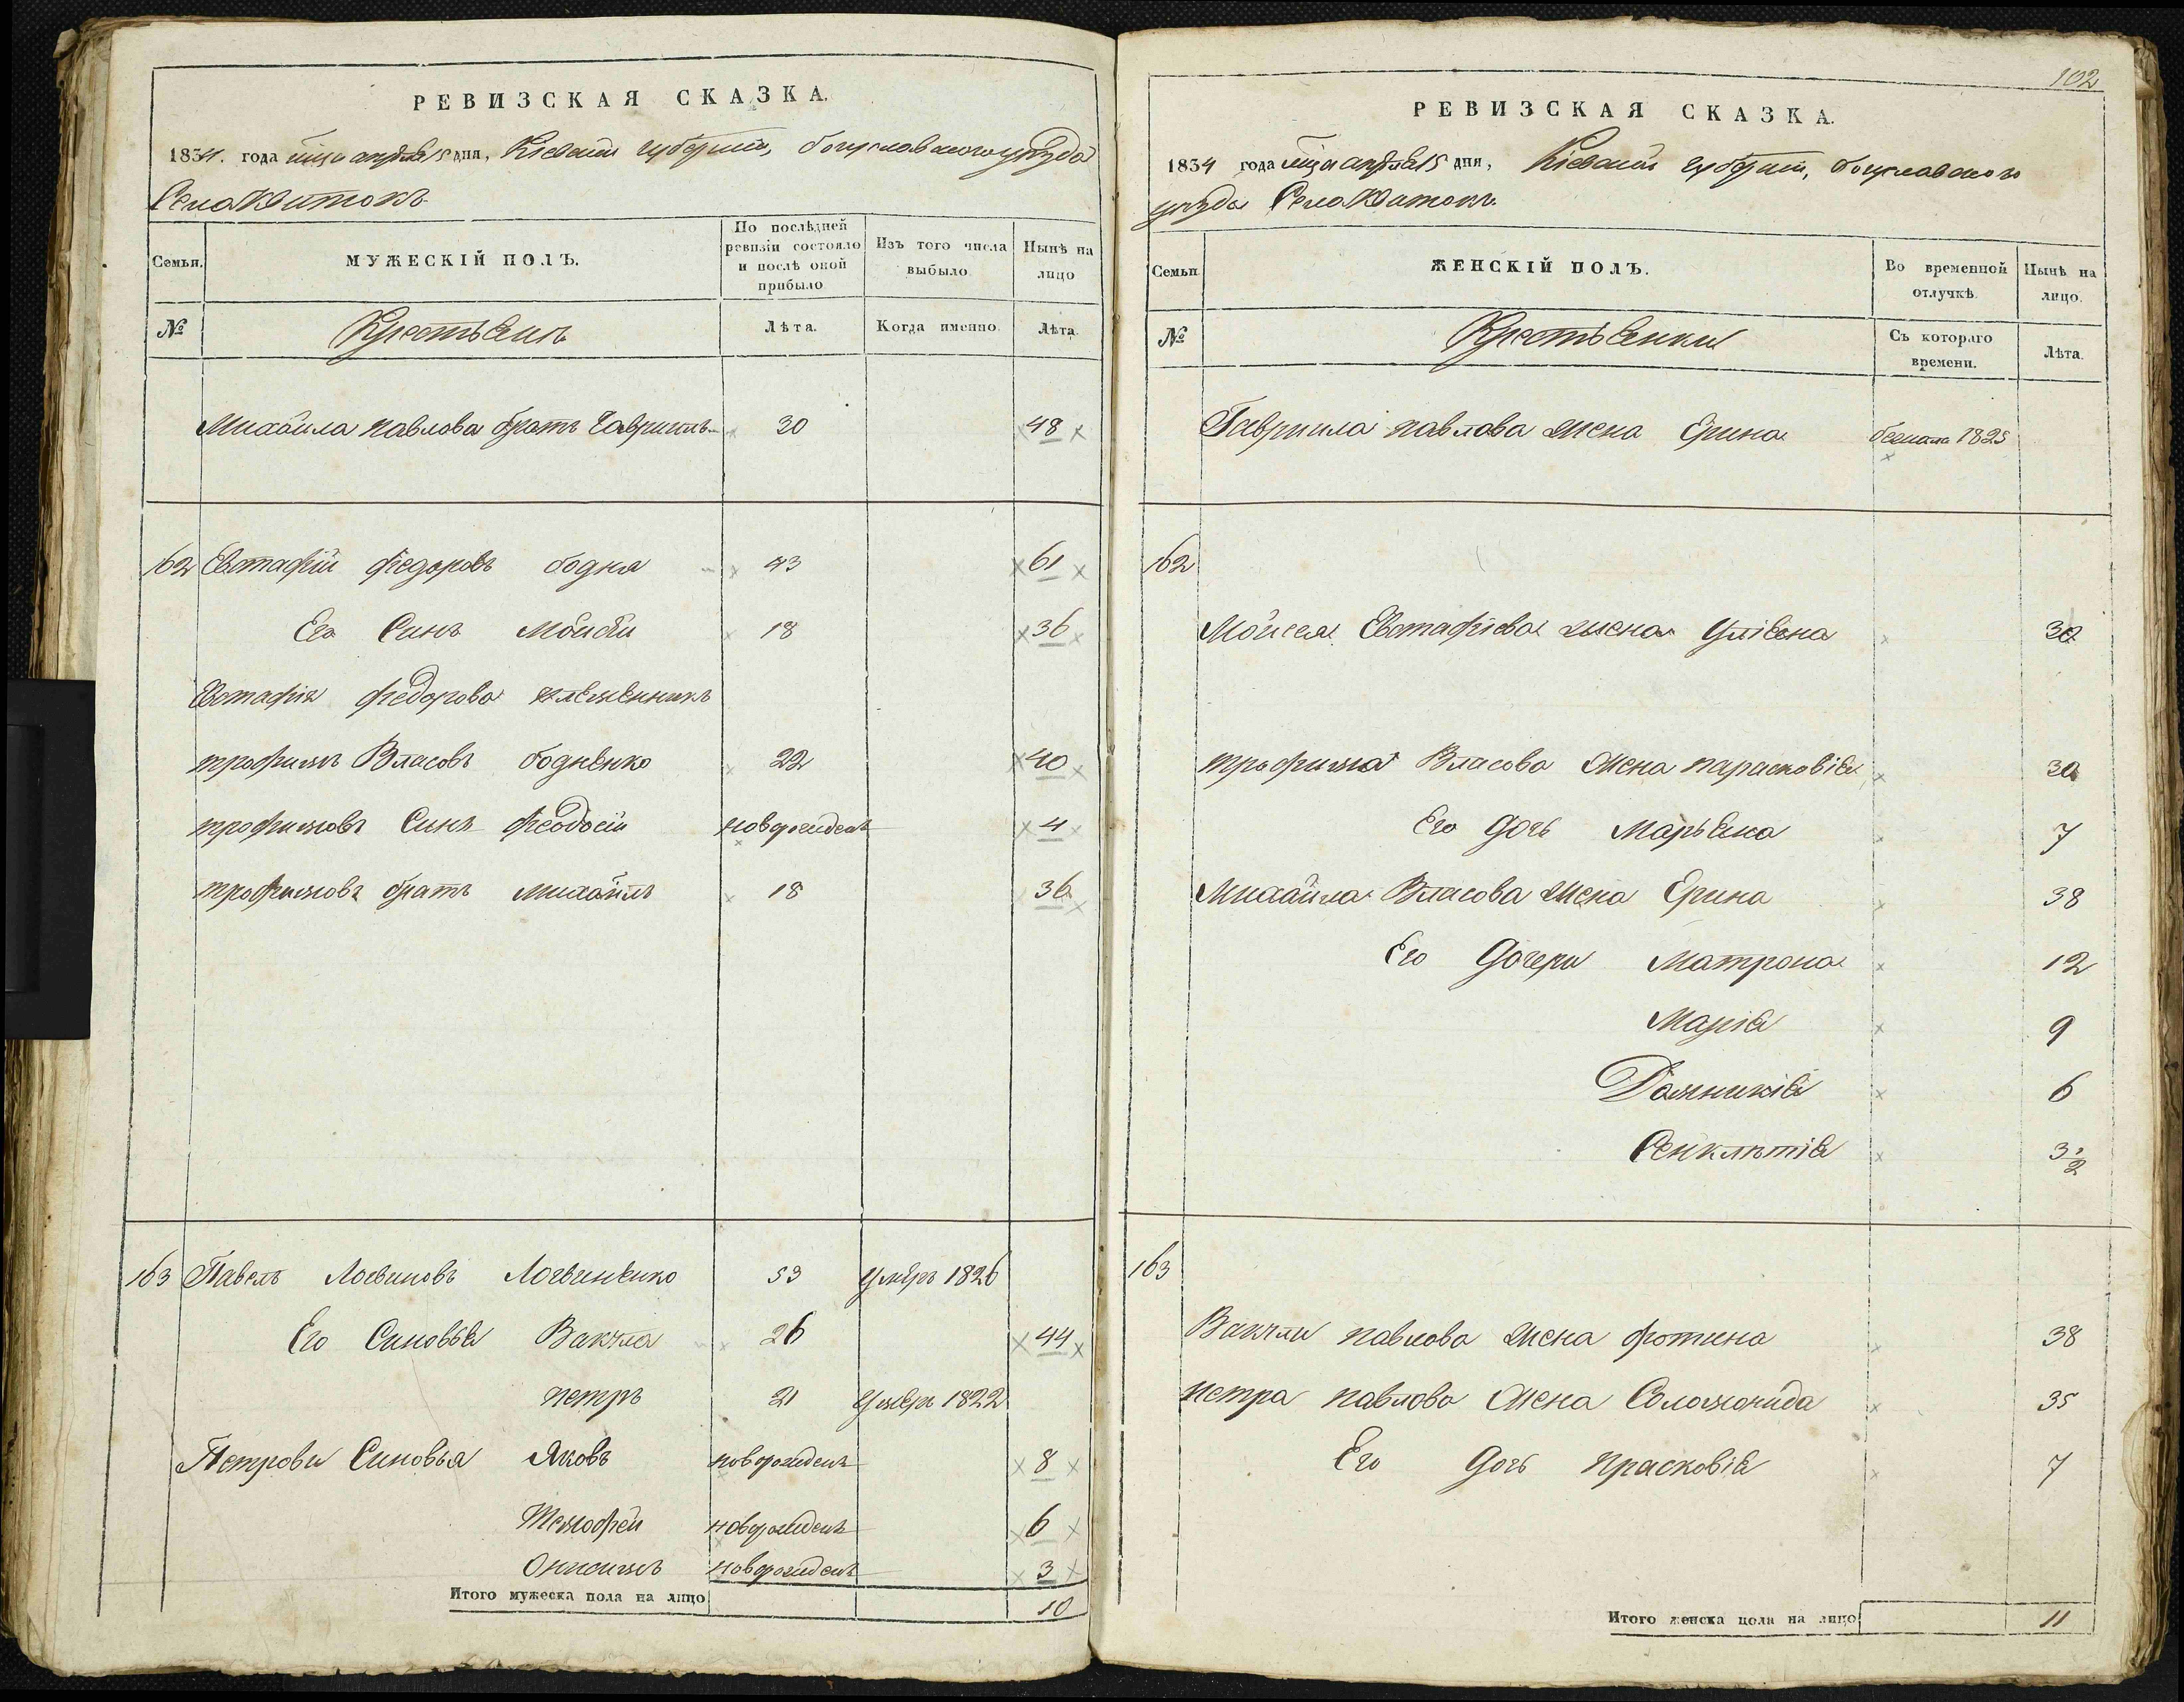 РЕВИЗСКАЯ СКАЗКА.
1834. года мца апреля 15 дня, Кіевской губерніи, богуславского уезда
Села Квитокъ
Семьи.
МУЖЕСКІЙ ПОЛЪ.
По послѣдней ревизіи состояло и послѣ оной прибыло
Изъ того числа выбыло
Нынѣ на лицо
№
Крестьянъ
Лѣта.
Когда именно
Лѣта.
Михаила павлова братъ Гавриилъ 30 48
162 Евтафій федоровъ бодня 43 61
Его Синъ Мойсѣй 18 36
Евтафія федорова племенникъ
трофимъ Власовъ бодненко 22 40
трофимовъ Синъ феодосій новорожденъ 4
трофимовъ братъ михайлъ 18 36
163 Павелъ Логвиновъ Логвиненко 53 умеръ 1826
Его Синовья Вакула 26 44
петръ 21 умеръ 1822
Петрови Синовья Яковъ новорожденъ 8
Тимофей новорожденъ 6
Онисимъ новорожденъ 3
Итого мужеска пола на лицо 10
102
РЕВИЗСКАЯ СКАЗКА.
1834 года мца апреля 15 дня, Кіевской губерніи, богуславского
уезда Села Квитокъ
Семьи.
ЖЕНСКІЙ ПОЛЪ.
Во временной отлучкѣ.
Нынѣ на лицо.
№
Крестьянки
Съ котораго времени.
Лѣта.
Гавриила павлова жена Ерина 1825
162
Мойсея Евтафіева жена Уліяна 30
трофима Власова жена парасковія 30
Его дочь Марьяна 7
Михайла Власова жена Ерина 38
Его Дочери Матрона 12
Марія 9
Домникія 6
Сенклѣтія 3 1/2
163
Вакули павлова жена фотина 38
петра павлова жена Соломонида 35
Его дочь прасковія 7
Итого женска пола на лицо 11